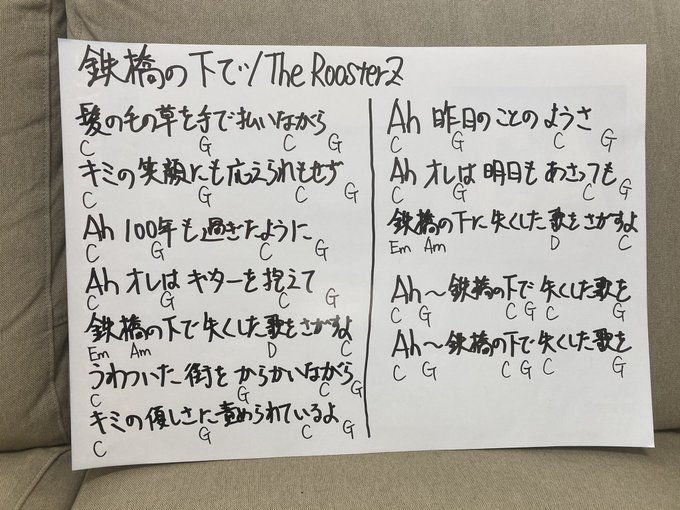 鉄橋の下で/The RoosterZ
髪の毛の草を手で払いながら
C G C G
キミの笑顔にも応えられもせず
C G C G
Ah 100年も過ぎたように
C G C G
Ah オレは ギターを抱えて
C G C G
鉄橋の下で失くした歌をさがすよ
Em Am D C
うわついた街をからかいながら
C G C G
キミの優しさに責められているよ
C G C G
Ah 昨日のことのようさ
C G C G
Ah オレは明日もあさっても
C G C G
鉄橋の下に失くした歌をさがすよ
Em Am D C
Ah〜鉄橋の下で失くした歌を
C G C G C G
Ah〜鉄橋の下で失くした歌を
C G C G C G